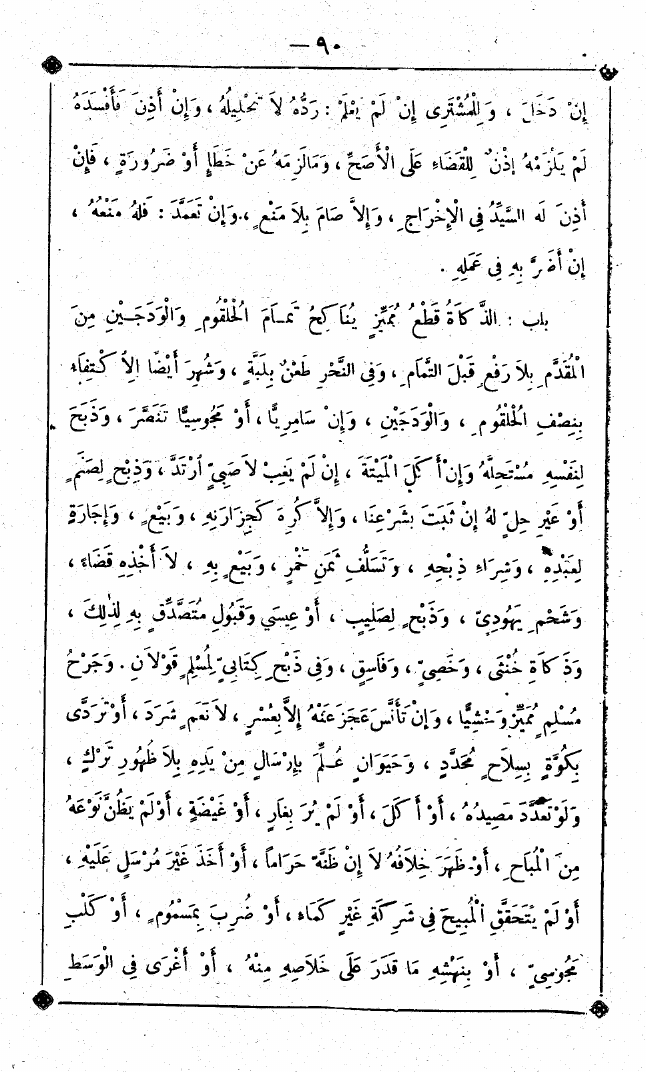 — ٩٠
إِنْ دَخَلَ ، وَلِلْمُشْتَرِى إِنْ لَمْ يَعْلَمْ : رَدُّهُ لاَ تَحْلِيلُهُ ، وَإِنْ أَذِنَ فَأَفْسَدَهُ
لَمْ يَلْزَمْهُ إِذْنٌ لِلْقَضَاءِ عَلَى الْأَصَحِّ ، وَمَا لَزِمَهُ عَنْ خَطَإٍ أَوْ ضَرُورَةٍ ، فَإِنْ
أَذِنَ لَه السَّيِّدُ فِى الْإِخْرَاجِ ، وَإِلاَّ صَامَ بِلاَ مَنْعٍ ، وَإِنْ تَعَمَّدَ : فَلَهُ مَنْعُهُ ،
إِنْ أَضَرَّ بِهِ فِى عَمَلِهِ .
باب : الذَّكَاةُ قَطْعُ مُمَيِّزٍ يُنَاكَحُ تَمَامَ الْحُلْقُومِ وَالْوَدَجَيْنِ مِنَ
الْمُقَدَّمِ بِلاَ رَفْعٍ قَبْلَ التَّمَامِ ، وَفِى النَّحْرِ طَعْنٌ بِلَبَّةٍ ، وَشُهِرَ أَيْضًا الِاكْتِفَاءُ
بِنِصْفِ الْحُلْقُومِ ، وَالْوَدَجَيْنِ ، وَإِنْ سَامِرِيًّا ، أَوْ مَجُوسِيًّا تَنَصَّرَ ، وَذَبَحَ
لِنَفْسِهِ مُسْتَحِلَّهُ وَإِنْ أَكَلَ الْمَيْتَةَ ، إِنْ لَمْ يَغِبْ لاَ صَبِىٍّ ارْتَدَّ ، وَذِبْحٍ لِصَنَمٍ
أَوْ غَيْرِ حِلٍّ لَهُ إِنْ ثَبَتَ بِشَرْعِنَا ، وَإِلاَّ كُرِهَ كَجِزَارَتِهِ ، وَبَيْعٍ ، وَإِجَارَةٍ
لِعَبْدِهِ ، وَشِرَاءِ ذِبْحِهِ ، وَتَسَلُّفِ ثَمَنِ خَمْرٍ ، وَبَيْعٍ بِهِ ، لاَ أَخْذِهِ قَضَاءً ،
وَشَحْمِ يَهُودِىٍّ ، وَذَبْحٍ لِصَلِيبٍ ، أَوْ عِيسَى وَقَبُولِ مُتَصَدَّقٍ بِهِ لِذٰلِكَ ،
وَذَكَاةِ خُنْثَى ، وَخَصِىٍّ ، وَفَاسِقٍ ، وَفِى ذَبْحِ كِتَابِىٍّ لِمُسْلِمٍ قَوْلاَنِ . وَجَرْحُ
مُسْلِمٍ مُمَيِّزٍ وَحْشِيًّا ، وَإِنْ تَأَنَّسَ عَجَزَ عَنْهُ إِلاَّ بِعُسْرٍ ، لاَ نَعَمٍ شَرَدَ ، أَوْ تَرَدَّى
بِكُوَّةٍ بِسِلاَحٍ مُحَدَّدٍ ، وَحَيَوَانٍ عُلِّمَ بِإِرْسَالٍ مِنْ يَدِهِ بِلاَ ظُهُورِ تَرْكٍ ،
وَلَوْ تَعَدَّدَ مَصِيدُهُ ، أَوْ أَكَلَ ، أَوْ لَمْ يُرَ بِغَارٍ ، أَوْ غَيْضَةٍ ، أَوْ لَمْ يَظُنَّ نَوْعَهُ
مِنَ الْمُبَاحِ ، أَوْ ظَهَرَ خِلاَفُهُ لاَ إِنْ ظَنَّهُ حَرَاماً ، أَوْ أَخَذَ غَيْرَ مُرْسَلٍ عَلَيْهِ ،
أَوْ لَمْ يَتَحَقَّقِ الْمُبِيحَ فِى شَرِكَةِ غَيْرٍ كَمَاءٍ ، أَوْ ضُرِبَ بِمَسْمُومٍ ، أَوْ كَلْبِ
مَجُوسِىٍّ ، أَوْ بِنَهْشِهِ مَا قَدَرَ عَلَى خَلاَصِهِ مِنْهُ ، أَوْ أَغْرَى فِى الْوَسَطِ